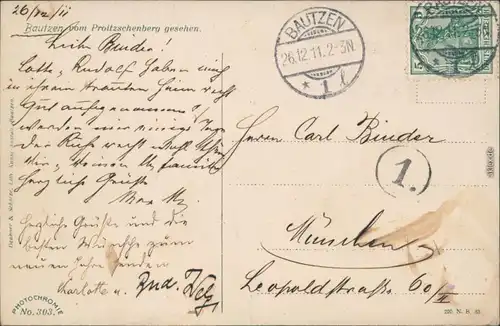 26/12 11
Bautzen vom Proitzschenberg gesehen.
Lieber Binder!
Lotte, Rudolf haben mich
in ihrem trauten Heim recht
gut aufgenommen,
werden mir einige Tage
der Ruhe recht wohl thun
Dir, Deiner
herzliche Grüße
Max
Herzliche Grüße und die
besten Wünsche zum
neuen Jahre senden
Charlotte u. Rud.
BAUTZEN
26.12.11.2-3N.
* 1 l
BAUTZEN
Herrn Carl Binder
1.
München
Leopoldstraße 60/II
PHOTOCHROMIE
No. 303.
220. N. K. 03.